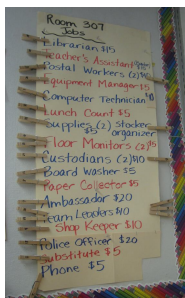 Room 307
Jobs
Librarian $15
Teacher's Assistant
Postal Workers (2)
Equipment Manager $15
Computer Technician
Lunch Count $5
Supplies (2) Stocker
$5 organizer
Floor Monitors (2) $15
Custodians (2) $10
Board Washer $5
Paper Collector $5
Ambassador $20
Team Leaders $10
Shop Keeper $10
Police Officer $20
Substitute $5
Phone $5